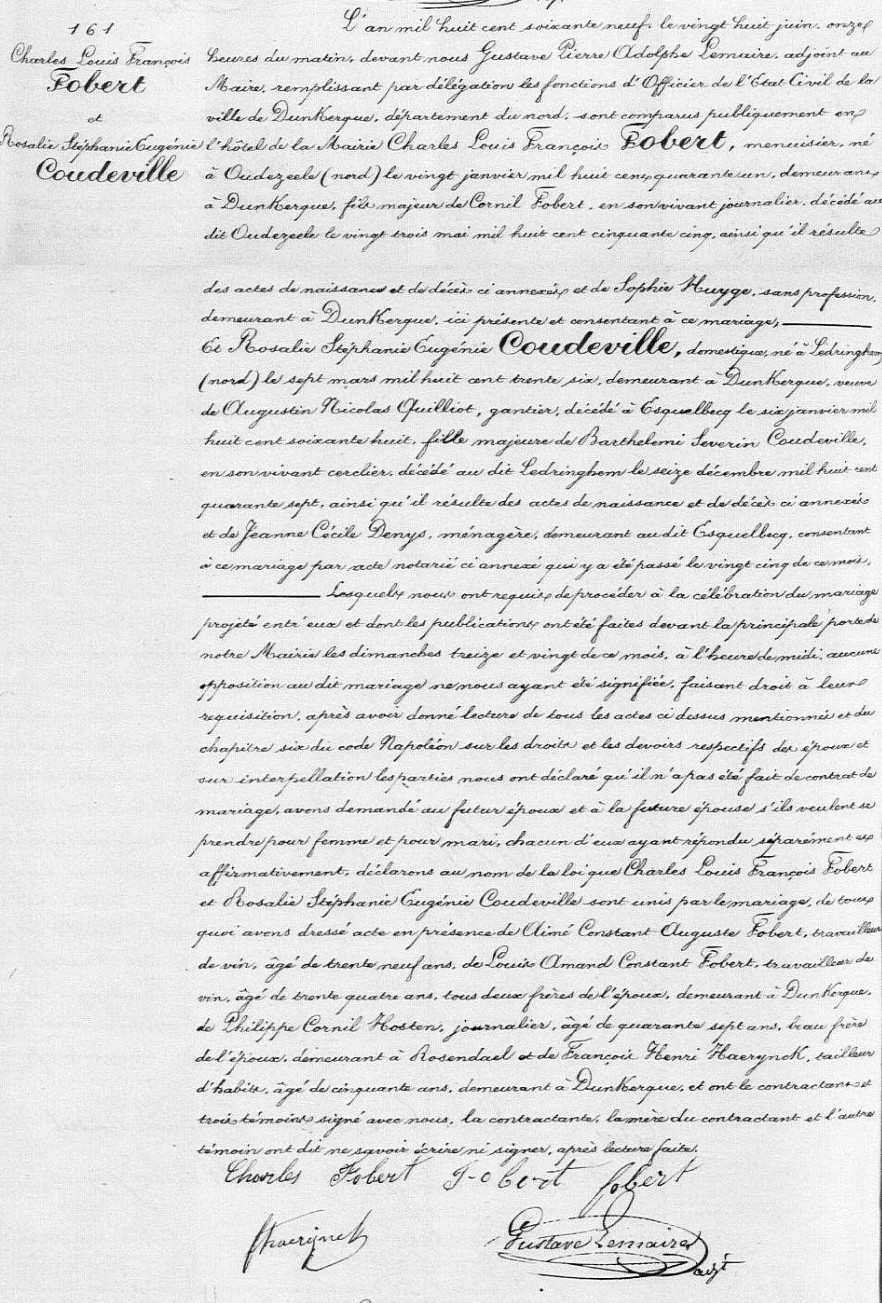 161
Charles Louis François
Fobert
et
Rosalie Stéphanie Eugénie
Coudeville
L'an mil huit cent soixante neuf, le vingt huit juin, onze
heures du matin, devant nous Gustave Pierre Adolphe Lemaire, adjoint au
Maire, remplissant par délégation les fonctions d'Officier de l'Etat Civil de la
ville de Dunkerque, département du nord, sont comparus publiquement en
l'hôtel de la Mairie Charles Louis François Fobert, menuisier, né
à Oudezeele (nord) le vingt janvier mil huit cent quarante un, demeurant
à Dunkerque, fils majeur de Cornil Fobert, en son vivant journalier, décédé au
dit Oudezeele le vingt trois mai mil huit cent cinquante cinq, ainsi qu'il résulte
des actes de naissance et de décès ci annexés et de Sophie Huyge, sans profession,
demeurant à Dunkerque, ici présente et consentant à ce mariage,
Et Rosalie Stéphanie Eugénie Coudeville, domestique, né à Ledringhem
(nord) le sept mars mil huit cent trente six, demeurant à Dunkerque, veuve
de Augustin Nicolas Quilliot, gantier, décédé à Esquelbecq le six janvier mil
huit cent soixante huit, fille majeure de Barthelemi Severin Coudeville,
en son vivant cerclier, décédé au dit Ledringhem le seize décembre mil huit cent
quarante sept, ainsi qu'il résulte des actes de naissance et de décès ci annexés
et de Jeanne Cécile Denys, ménagère, demeurant au dit Esquelbecq, consentant
à ce mariage par acte notarié ci annexé qui y a été passé le vingt cinq de ce mois,
Lesquels nous ont requis de procéder à la célébration du mariage
projeté entr'eux et dont les publications ont été faites devant la principale porte de
notre Mairie les dimanches treize et vingt de ce mois, à l'heure de midi, aucune
opposition au dit mariage ne nous ayant été signifiée, faisant droit à leur
requisition, après avoir donné lecture de tous les actes ci dessus mentionnés et du
chapitre six du code Napoléon sur les droits et les devoirs respectifs des époux et
sur interpellation les parties nous ont déclaré qu'il n'a pas été fait de contrat de
mariage, avons demandé au futur époux et à la future épouse s'ils veulent se
prendre pour femme et pour mari, chacun d'eux ayant répondu séparément et
affirmativement, déclarons au nom de la loi que Charles Louis François Fobert
et Rosalie Stéphanie Eugénie Coudeville sont unis par le mariage, de tout
quoi avons dressé acte en présence de Aimé Constant Auguste Fobert, travailleur
de vin, âgé de trente neuf ans, de Louis Amand Constant Fobert, travailleur de
vin, âgé de trente quatre ans, tous deux frères de l'époux, demeurant à Dunkerque,
de Philippe Cornil Hosten, journalier, âgé de quarante sept ans, beau frère
de l'époux, demeurant à Rosendael et de François Henri Haerynck, tailleur
d'habits, âgé de cinquante ans, demeurant à Dunkerque, et ont le contractant et
trois témoins signé avec nous, la contractante, la mère du contractant et l'autre
témoin ont dit ne savoir écrire ni signer, après lecture faite.
Charles Fobert Fobert fobert
fhaerynck Gustave Lemaire adjt